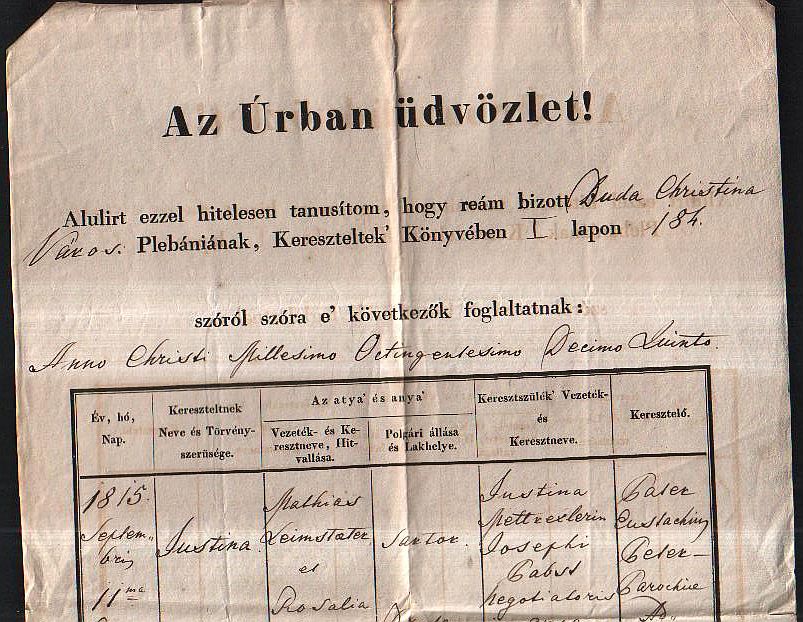 Az Úrban üdvözlet!
Alulirt ezzel hitelesen tanusítom, hogy reám bizott Buda Christina
Város. Plebániának, Kereszteltek' Könyvében I. lapon 184.
szóról szóra e' következők foglaltatnak:
Anno Christi Millesimo Octingentesimo Decimo Quinto.
Év, hó,
Nap.
Kereszteltnek
Neve és Törvény-
szerüsége.
Az atya' és anya'
Vezeték- és Ke-
resztneve, Hit-
vallása.
Polgári állása
és Lakhelye.
Keresztszülék' Vezeték-
és
Keresztneve.
Keresztelő.
1815.
Septem-
bris
11ma
Justina
Mathias
Leimstæter
et
Rosalia
Sartor.
Justina
Josephi
Pabst
negotiatoris
Pater
Eustachius
Peter-
Parochiæ